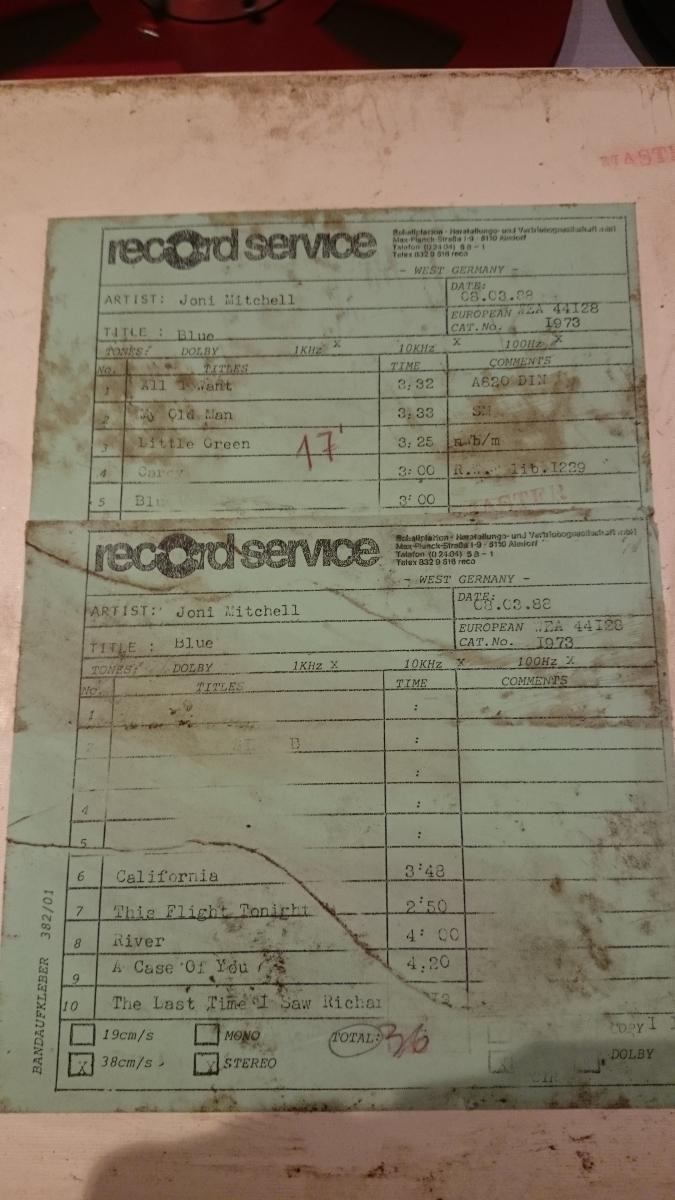 MASTE
record service
Schallplatten - Herstellungs- und Vertriebsgesellschaft mbH
Max-Planck-Straße 1-9 · 5110 Alsdorf
Telefon (0 24 04) 5 8 - 1
Telex 832 9 516 reco
- WEST GERMANY -
ARTIST: Joni Mitchell
DATE: 08.03.88
TITLE : Blue
EUROPEAN WEA 44128
CAT.No. 1973
TONES: DOLBY 1KHz X 10KHz X 100Hz X
No. TITLES TIME COMMENTS
1 All I Want 3,32 A820 DIN
2 My Old Man 3,33
3 Little Green 3,25
17'
4 Carey 3:00 lib.1229
5 Blu 3:00
MASTER
record service
Schallplatten - Herstellungs- und Vertriebsgesellschaft mbH
Max-Planck-Straße 1-9 · 5110 Alsdorf
Telefon (0 24 04) 5 8 - 1
Telex 832 9 516 reco
- WEST GERMANY -
ARTIST: Joni Mitchell
DATE: 08.03.88
TITLE : Blue
EUROPEAN WEA 44128
CAT.No. 1973
TONES: DOLBY 1KHz X 10KHz X 100Hz X
No. TITLES TIME COMMENTS
1 :
2 B :
:
4 :
5 :
6 California 3:48
7 This Flight Tonight 2:50
8 River 4: 00
9 A Case Of You 4.20
10 The Last Time I Saw Richar
19cm/s MONO TOTAL: 36 COPY I
X 38cm/s X STEREO DOLBY
BANDAUFKLEBER 382/01